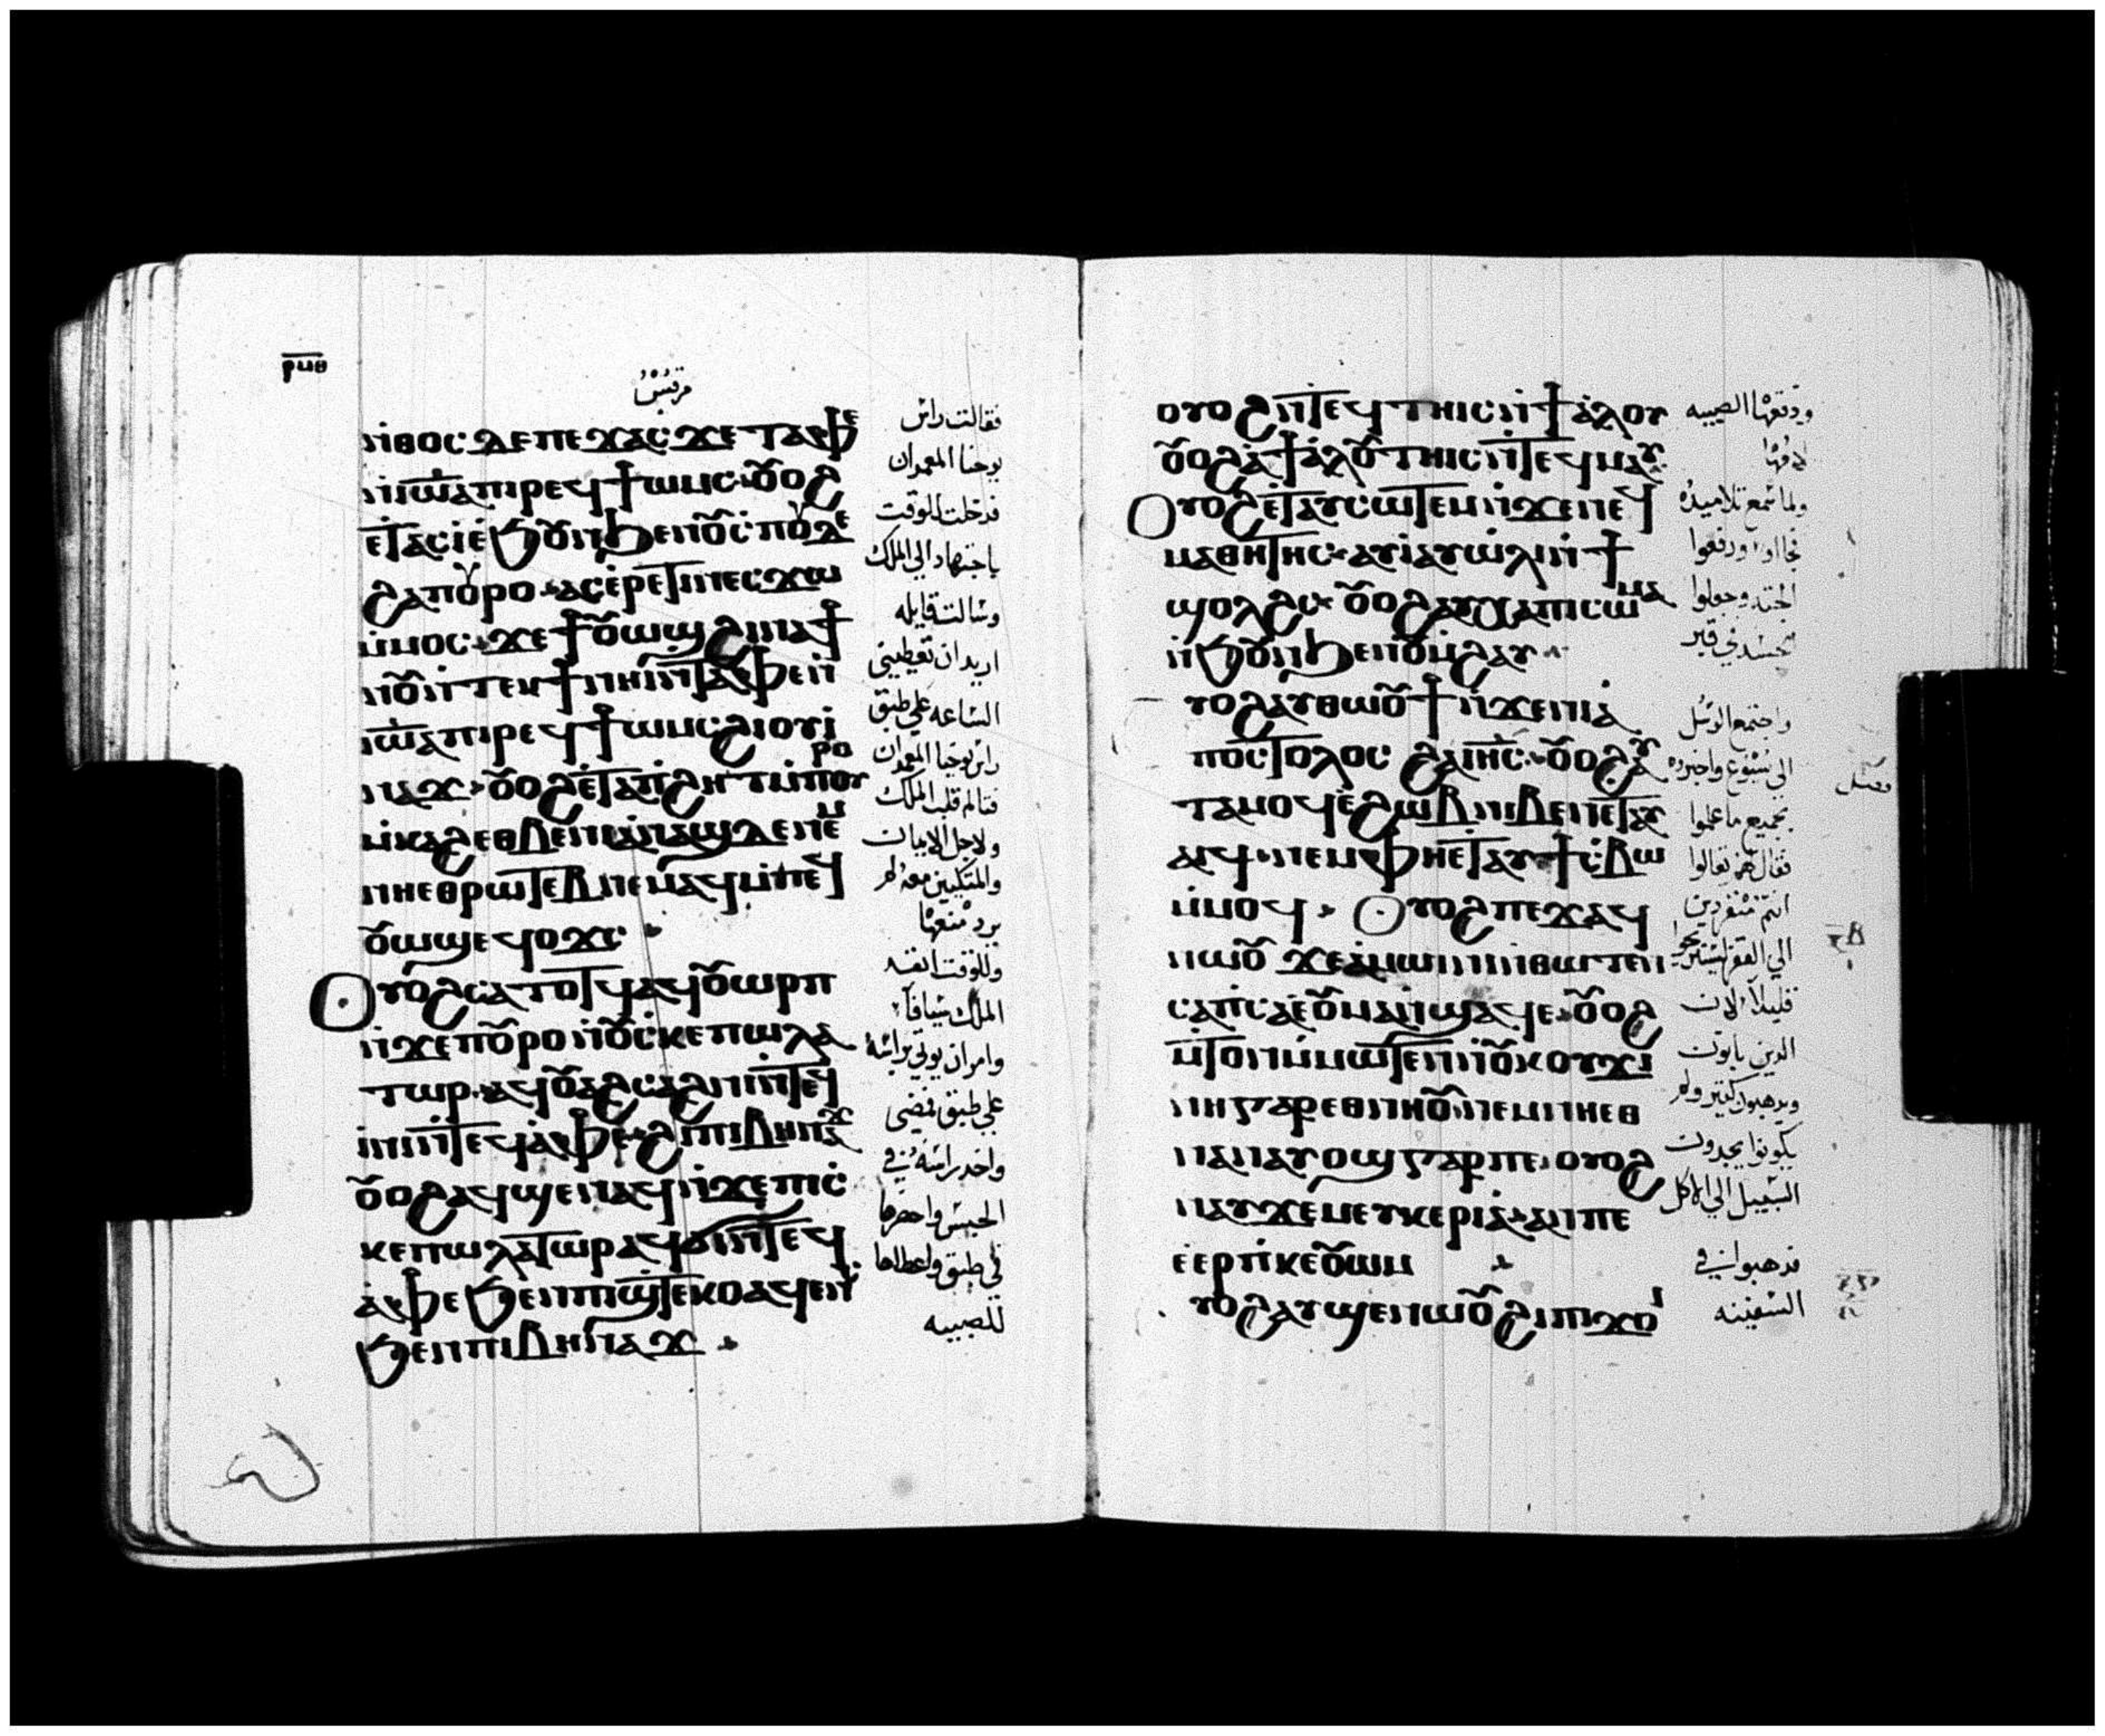 ⲣⲙⲑ
مرقس
ⲛⲑⲟⲥ ⲇⲉ ⲡⲉϫⲁⲥ ϫⲉ ⲧⲁⲫⲉ
ⲛⲓⲱⲁ ⲡⲓⲣⲉϥϯⲱⲙⲥ ⲟⲩⲟϩ
ⲉⲧⲁⲥⲓ ⲉϧⲟⲩⲛ ϧⲉⲛ ⲟⲩⲥⲡⲟⲩⲇⲉ
ϩⲁ ⲡⲟⲩⲣⲟ ⲁⲥⲉⲣⲉⲧⲓⲛ ⲉⲥϫⲱ
ⲙⲙⲟⲥ ϫⲉ ϯⲟⲩⲱϣ ϩⲓⲛⲁ
ⲛⲧⲉⲕϯ ⲛⲏⲓ ⲛⲧⲁⲫⲉ ⲛ
ⲓⲱⲁ ⲡⲓⲣⲉϥϯⲱⲙⲥ ϩⲓ ⲟⲩⲃⲓ
ⲛⲁϫ ⲟⲩⲟϩ ⲉⲧⲁ ⲡϩⲏⲧ ⲙⲡⲟⲩⲣⲟ
ⲙⲕⲁϩ ⲉⲑⲃⲉ ⲛⲓⲁⲛⲁϣ ⲇⲉ ⲛⲉⲙ
ⲛⲏⲉⲑⲣⲱⲧⲉⲃ ⲛⲉⲙⲁϥ ⲙⲡⲉϥ
ⲟⲩⲱϣ ⲉϥⲟϫⲥ
ⲟⲩⲟϩ ⲥⲁⲧⲟⲧϥ ⲁϥⲟⲩⲱⲣⲡ
ⲛϫⲉ ⲡⲟⲩⲣⲟ ⲛⲟⲩⲥⲕⲉⲡⲱⲗⲁ
ⲧⲱⲣ ⲁϥⲟⲩⲁϩⲥⲁϩⲛⲓ ⲛⲧⲉϥ
ⲓⲛⲓ ⲛⲧⲉϥⲁⲫⲉ ϩⲓ ⲡⲓⲃⲏⲛⲁϫ
ⲟⲩⲟϩ ⲁϥϣⲉⲛⲁϥ ⲛϫⲉ ⲡⲓⲥ
ⲕⲉⲡⲱⲗⲁⲧⲱⲣ ⲁϥⲱⲗⲓ ⲛⲧⲉϥ
ⲁⲫⲉ ϧⲉⲛ ⲡⲓϣⲧⲉⲕⲟ ⲁϥⲉⲛⲥ
ϧⲉⲛ ⲡⲓⲃⲏⲛⲁϫ
فقالت راس
يوحنا المعمدان
فدخلت للوقت
باجتهاد الي الملك
وسالت قايله
اريد ان تعطيني
الساعه علي طبق
راس يوحنا المعمدان
فتالم قلب الملك
ولاجل الايمان
والمتكيين معه لم
يرد منعها
وللوقت انفد
الملك سيافا
وامر ان يوتي براسه
علي طبق فمضي
واخد راسه في
الحبس واحضرها
في طبق واعطاها
للصبيه
ⲟⲩⲟϩ ⲛⲧⲉϥⲧⲏⲓⲥ ⲛϯⲁⲗⲟⲩ
ⲟⲩⲟϩ ⲁϯⲁⲗⲟⲩ ⲧⲏⲓⲥ ⲛⲧⲉⲥⲙⲁⲩ
ⲟⲩⲟϩ ⲉⲧⲁⲩⲥⲱⲧⲉⲙ ⲛϫⲉ ⲛⲉϥ
ⲙⲁⲑⲏⲧⲏⲥ ⲁⲩⲓ ⲁⲩⲱⲗⲓ ⲛϯ
ϣⲟⲗϩⲥ ⲟⲩⲟϩ ⲁⲩⲭⲁ ⲡⲓⲥⲱⲙⲁ
ⲛϧⲟⲩⲛ ϧⲉⲛ ⲟⲩⲙϩⲁⲩ
ⲩⲟϩ ⲁⲩⲑⲱⲟⲩϯ ⲛϫⲉ ⲛⲓⲁ
ⲡⲟⲥⲧⲟⲗⲟⲥ ϩⲁ ⲓⲏⲥ ⲟⲩⲟϩ ⲁⲩ
ⲧⲁⲙⲟϥ ⲉϩⲱⲃ ⲛⲓⲃⲉⲛ ⲉⲧⲁⲩ
ⲁⲓϥ ⲛⲉⲙ ⲫⲏⲉⲧⲁⲩϯⲥⲃⲱ
ⲙⲙⲟϥ ⲟⲩⲟϩ ⲡⲉϫⲁϥ
ⲛⲱⲟⲩ ϫⲉ ⲁⲙⲱⲓⲛⲓ ⲛⲑⲱⲧⲉⲛ
ⲥⲁⲡⲥⲁ ⲉⲟⲩⲙⲁ ⲛϣⲁϥⲉ ⲟⲩⲟϩ
ⲙⲧⲟⲛ ⲙⲙⲱⲧⲉⲛ ⲛⲟⲩⲕⲟⲩϫⲓ
ⲛⲏ ⲅⲁⲣ ⲉⲑⲛⲏⲟⲩ ⲛⲉⲙ ⲛⲏⲉⲑ
ⲛⲁ ⲛⲁⲩⲟϣ ⲅⲁⲣ ⲡⲉ ⲟⲩⲟϩ
ⲛⲁⲩϫⲉⲙ ⲉⲩⲕⲉⲣⲓⲁ ⲁⲛ ⲡⲉ
ⲉⲉⲣⲡⲕⲉⲟⲩⲱⲙ
ⲩⲟϩ ⲁⲩϣⲉⲛⲱⲟⲩ ϩⲓ ⲡⲓϫⲟⲓ
ودفعها الصبيه
لامها
ولما سمع تلاميده
فجااوا ورفعوا
الجتد وجعلوا
جسد في قبر
واجتمع الرسل
الي يسوع واخبروه
بجميع ما عملوا
فقال لهم تعالوا
انتم منفردين
قليلا لان
الدين ياتوت
ويدهبون كتير ولم
يكونوا يجدوت
السبيل الي الاكل
فدهبوا في
السفينه
فصل